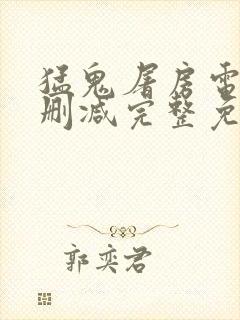 猛鬼屠房电
删减完整免
郭奕君